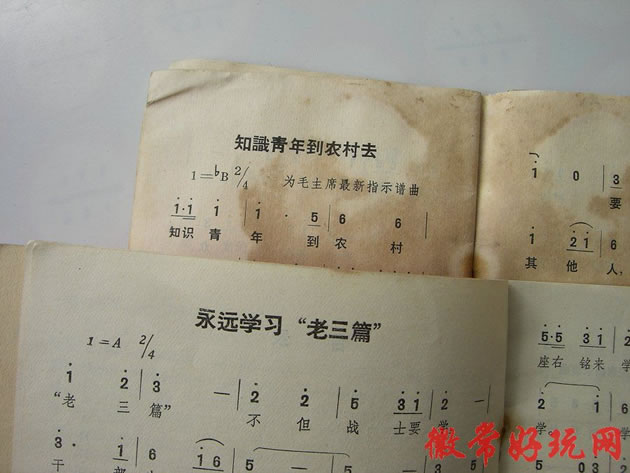 知識青年到农村去
1=♭B 2/4 为毛主席最新指示谱曲
1·1 1 | 1 · 5 | 6 6 |
知识 青 年 到 农 村
1 0 | 3
要
1 2 1 | 6
其 他 人,
永远学习“老三篇”
1=A 2/4
1 2 | 3 — | 2 2 | 5 3 1 | 2 —
“老 三 篇” 不 但 战 士要 学,
5·5 3 1 | 2
座右 铭来 学
2 1 | 6
学。
3· 5 | 6
干 部
徽常好玩网